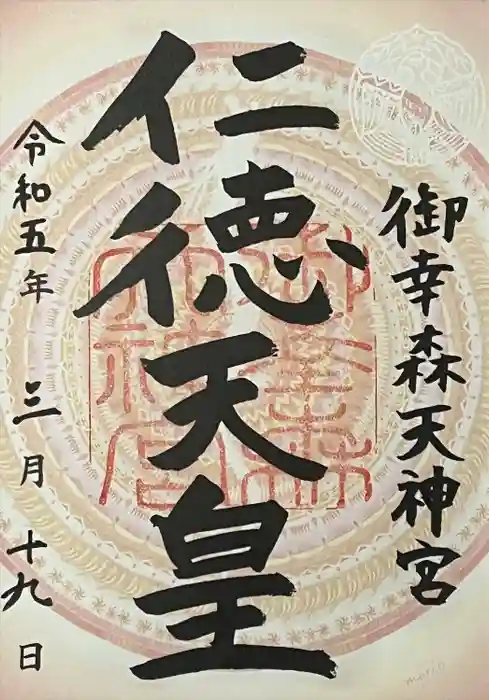 御幸森天神宮
仁徳天皇
令和五年 三月 十九日
mario